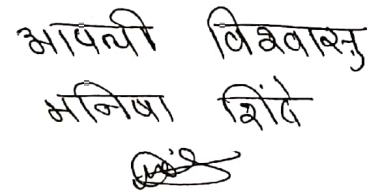 आपली विश्वासु
मनिषा शिंदे